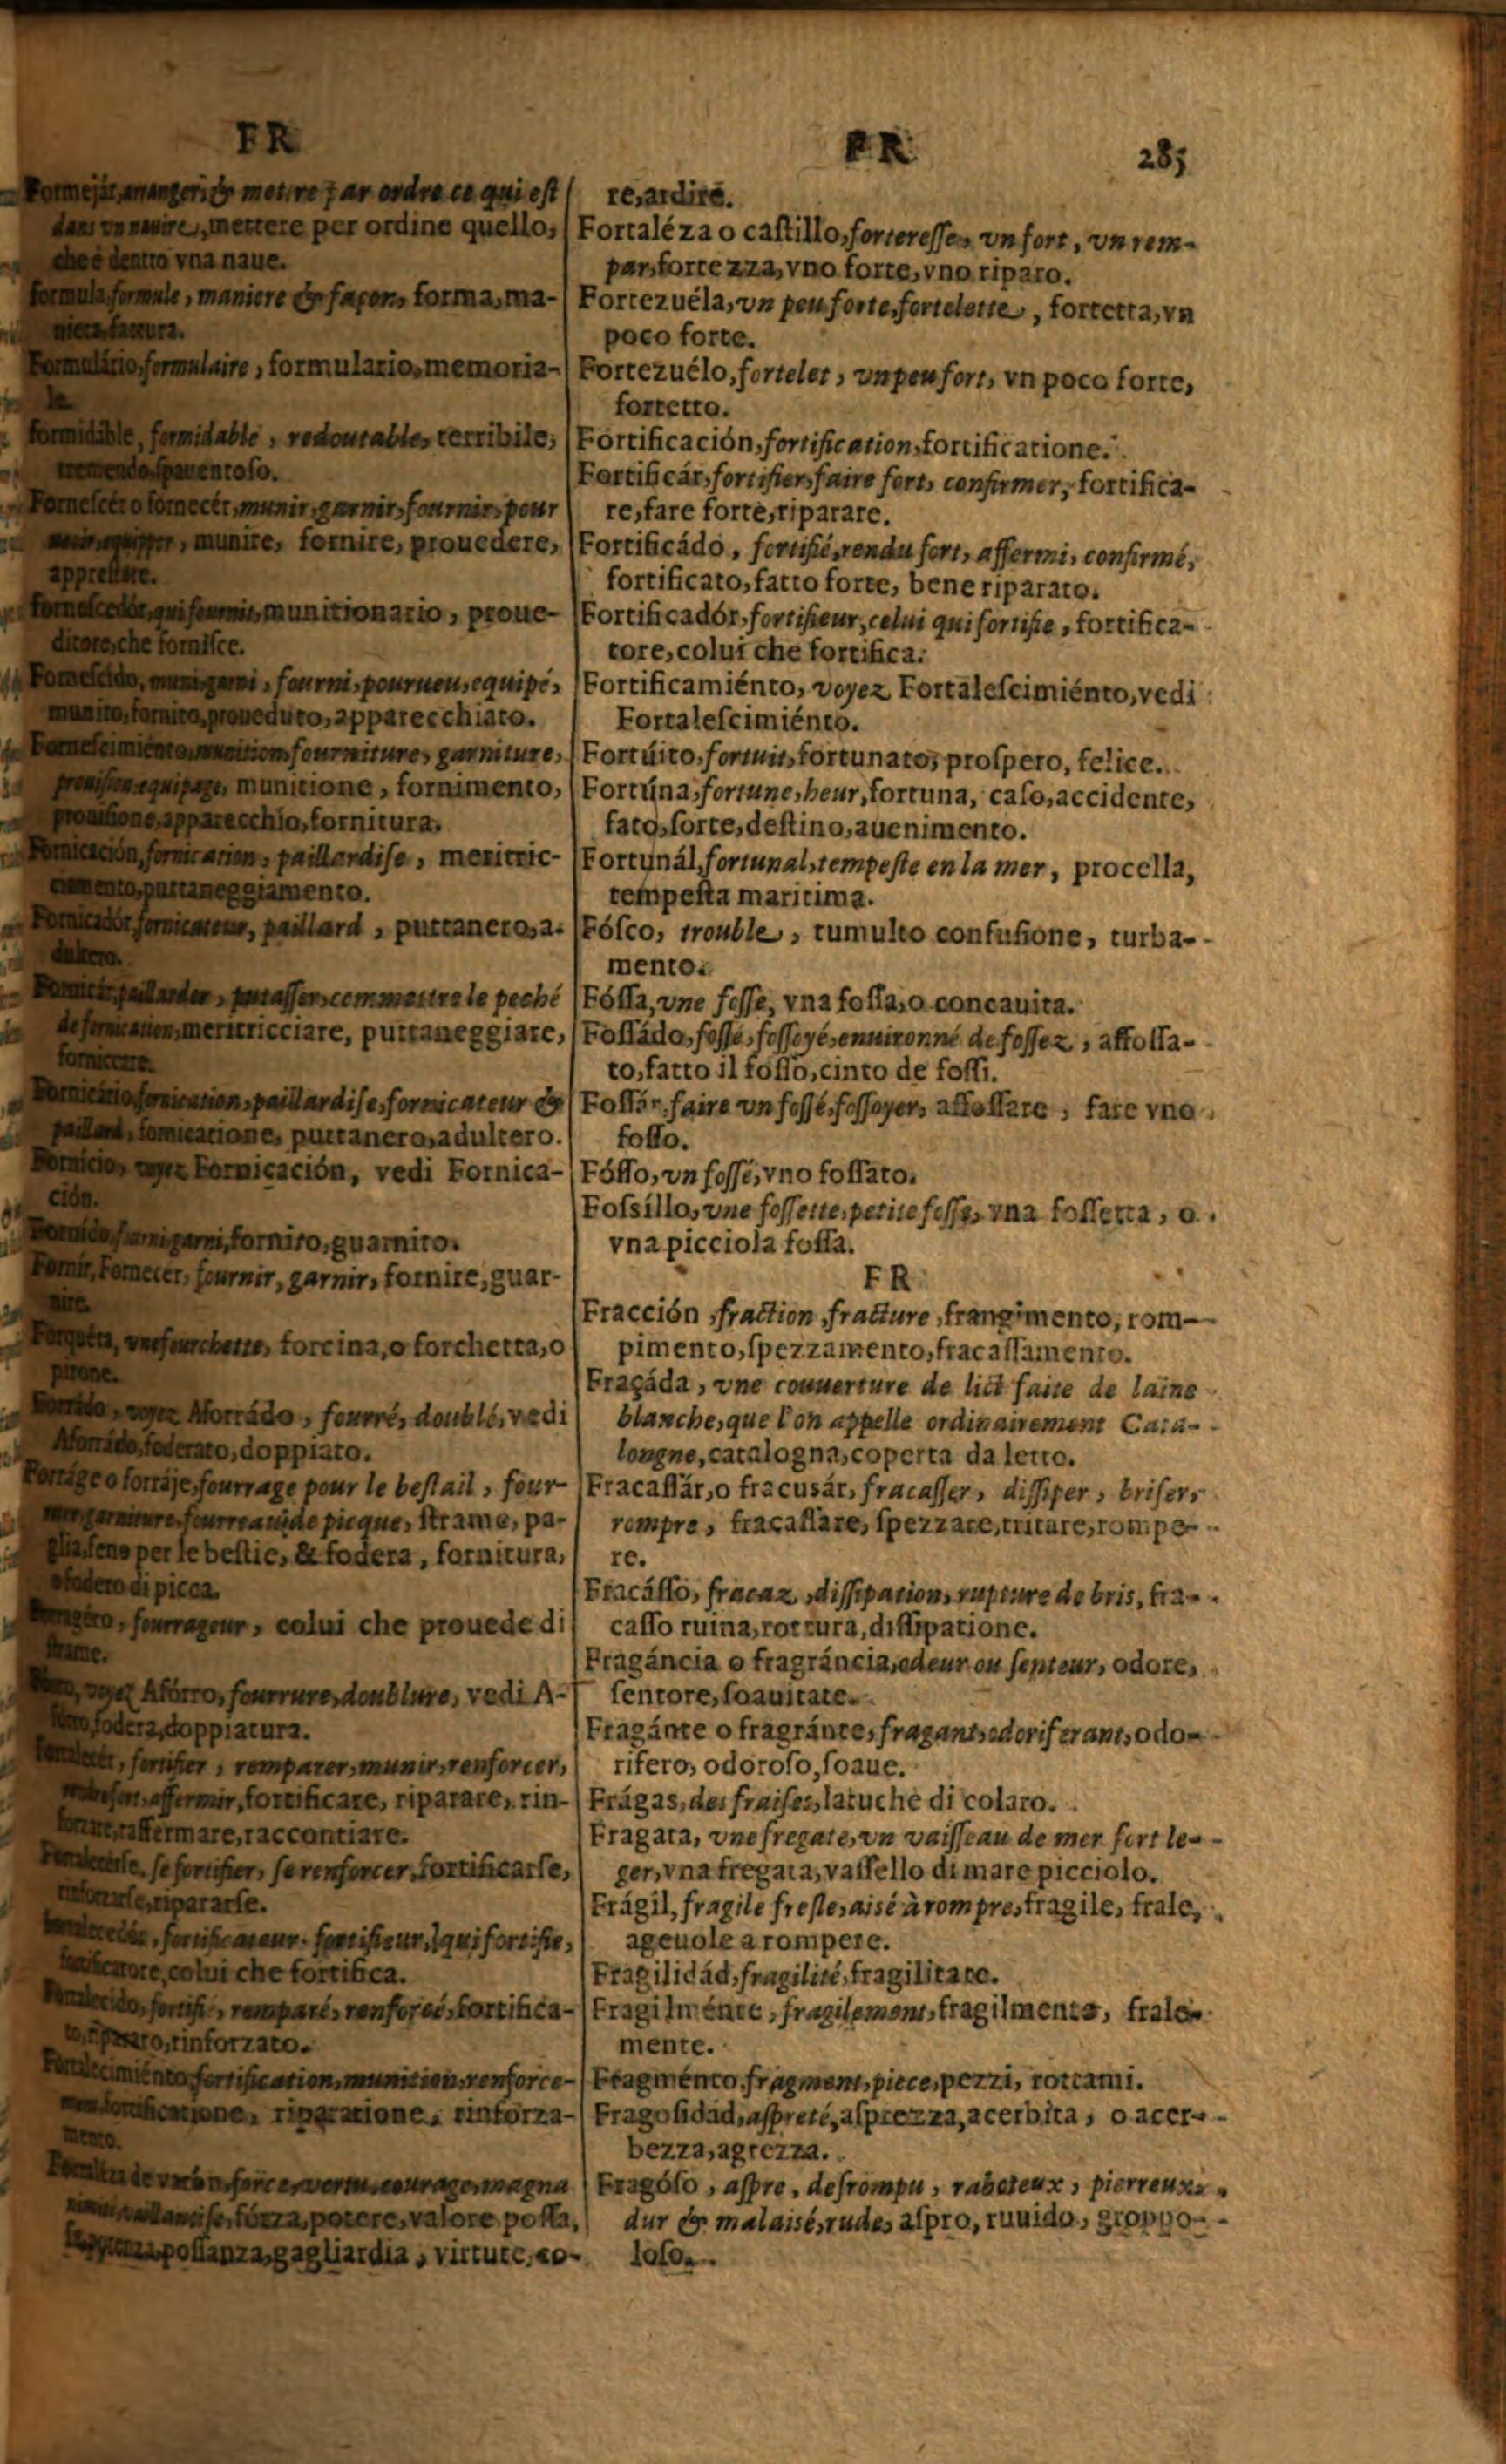 FR
FR
285
Formejár, arranger & mettre par ordre ce qui est
dans vn nauire, mettere per ordine quello,
che è dentro vna naue.
Formula, formule, maniere & façon, forma, ma-
niera, fattura.
Formulário, formulaire, formulario, memoria-
le.
Formidáble, formidable, redoutable, terribile,
tremendo, spauentoso.
Fornescér o fornecér, munir, garnir, fournir, pour
munire, fornire, prouedere,
apprestare.
Fornescedór, qui fournit, munitionario, proue-
ditore, che fornisce.
Fornescido, muni, garni, fourni, pourueu, equipé,
munito, fornito, proueduto, apparecchiato.
Fornescimiénto, munition, fourniture, garniture,
prouision, equipage, munitione, fornimento,
prouisione, apparecchio, fornitura.
Fornicación, fornication, paillardise, meritric-
ciamento, puttaneggiamento.
Fornicadór, fornicateur, paillard, puttanero, a-
dultero.
Fornicár, paillarder, putasser, commettre le peché
de fornication, meritricciare, puttaneggiare,
fornicare.
Fornicário, fornication, paillardise, fornicateur &
paillard, fornicatione, puttanero, adultero.
Fornicio, voyez Fornicación, vedi Fornica-
ción.
Fornido, fourni, garni, fornito, guarnito.
Fornir, Fornecer, fournir, garnir, fornire, guar-
nire.
Forquéta, vne fourchette, forcina, o forchetta, o
pirone.
Forrádo, voyez Aforrádo, fourré, doublé, vedi
Aforrádo, foderato, doppiato.
Forráge o forráje, fourrage pour le bestail, four-
rure, garniture, fourreau de picque, strame, pa-
glia, feno per le bestie, & fodera, fornitura,
o fodero di picca.
fourrageur, colui che prouede di
strame.
voyez Afórro, fourrure, doublure, vedi A-
forro, fodera, doppiatura.
fortifier, remparer, munir, renforcer,
affermir, fortificare, riparare, rin-
forzare, raffermare, racconciare.
se fortifier, se renforcer, fortificarse,
riparárse.
fortificateur, fortifieur, qui fortifie,
fortificatore, colui che fortifica.
fortifié, remparé, renforcé, fortifica-
to, riparato, rinforzato.
fortification, munition, renforce-
ment, fortificatione, riparatione, rinforza-
mento.
de varón, force, vertu, courage, magna
forza, potere, valore possa,
possanza, gagliardia, virtute, co-
re, ardire.
Fortaléza o castillo, forteresse, vn fort, vn rem-
par, fortezza, vno forte, vno riparo.
Fortezuéla, vn peu forte, fortelette, fortetta, vn
poco forte.
Fortezuélo, fortelet, vn peu fort, vn poco forte,
fortetto.
Fortificación, fortification, fortificatione.
Fortificár, fortifier, faire fort, confirmer, fortifica-
re, fare forte, riparare.
Fortificádo, fortifié, rendu fort, affermi, confirmé,
fortificato, fatto forte, bene riparato.
Fortificadór, fortifieur, celui qui fortifie, fortifica-
tore, colui che fortifica.
Fortificamiénto, voyez Fortalescimiénto, vedi
Fortalescimiénto.
Fortúito, fortuit, fortunato, prospero, felice.
Fortúna, fortune, heur, fortuna, caso, accidente,
fato, sorte, destino, auenimento.
Fortunál, fortunal, tempeste en la mer, procella,
tempesta maritima.
Fósco, trouble, tumulto confusione, turba-
mento.
Fóssa, vne fosse, vna fossa, o concauita.
Fossádo, fossé, fossoyé, enuironné de fossez, affossa-
to, fatto il fosso, cinto de fossi.
Fossár, faire vn fossé, fossoyer, affossare, fare vno
fosso.
Fósso, vn fossé, vno fossato.
Fossíllo, vne fossette, petite fosse, vna fossetta, o
vna picciola fossa.
FR
Fracción, fraction, fracture, frangimento, rom-
pimento, spezzamento, fracassamento.
Fraçáda, vne couuerture de lict faite de laine
blanche, que l'on appelle ordinairement Cata-
longne, catalogna, coperta da letto.
Fracassár, o fracusár, fracasser, dissiper, briser,
rompre, fracassare, spezzare, tritare, rompe-
re.
Fracásso, fracaz, dissipation, rupture de bris, fra-
casso ruina, rottura, dissipatione.
Fragáncia o fragráncia, odeur ou senteur, odore,
sentore, soauitate.
Fragánte o fragránte, fragant, odoriferant, odo-
rifero, odoroso, soaue.
Frágas, des fraises, latuche di colaro.
Fragata, vne fregate, vn vaisseau de mer fort le-
ger, vna fregata, vassello di mare picciolo.
Frágil, fragile fresle, aisé à rompre, fragile, frale,
ageuole a rompere.
Fragilidád, fragilité, fragilitate.
Fragilménte, fragilement, fragilmente, frale-
mente.
Fragménto, fragment, piece, pezzi, rottami.
Fragosidad, aspreté, asprezza, acerbita, o acer-
bezza, agrezza.
Fragóso, aspre, desrompu, raboteux, pierreux,
dur & malaisé, rude, aspro, ruuido, groppo-
loso.